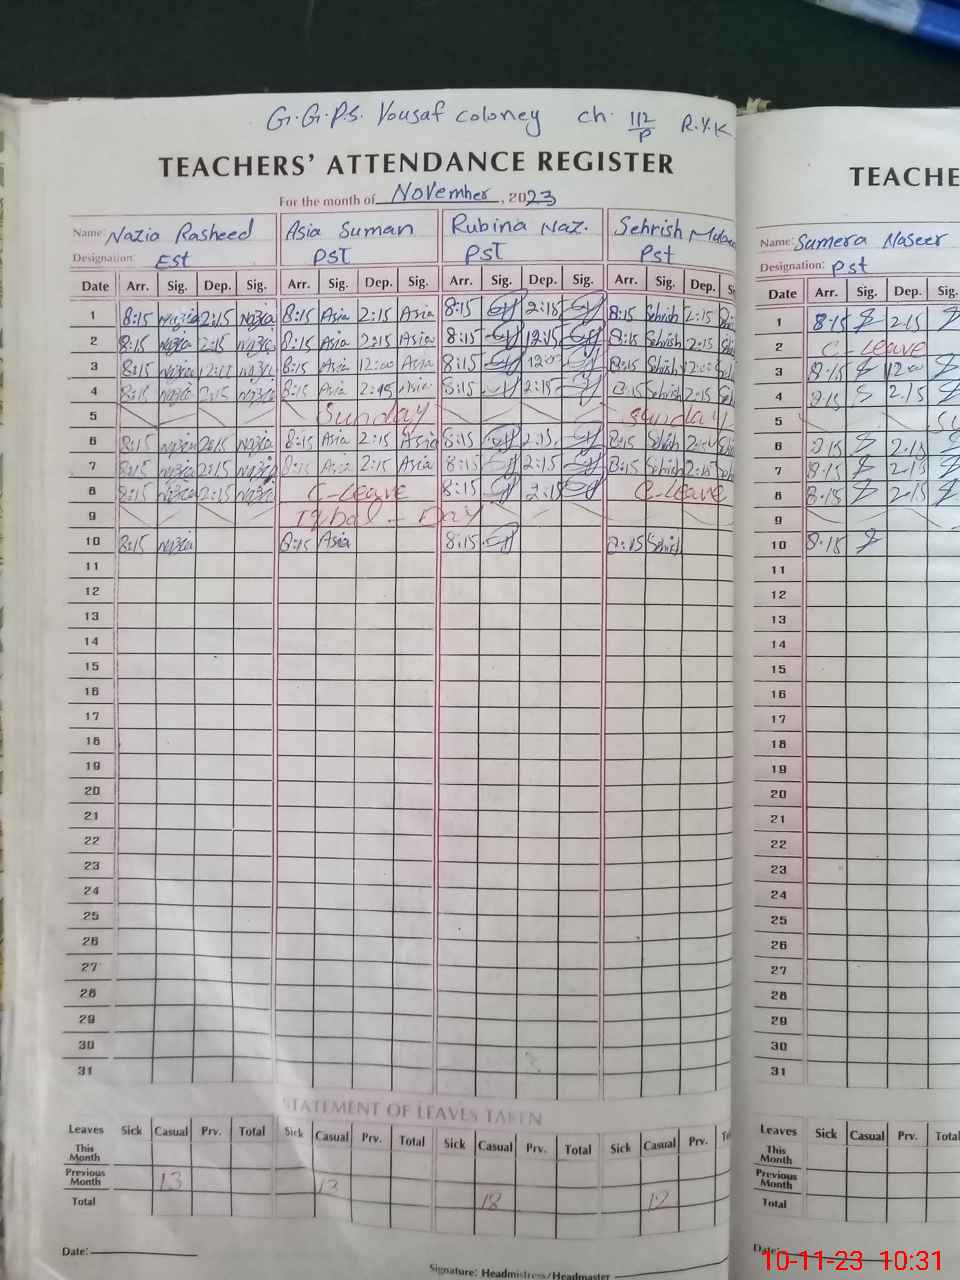 G.G.P.S. Yousaf coloney ch. 112/P R.Y.K
TEACHERS' ATTENDANCE REGISTER
TEACHE
For the month of November, 2023
Name: Nazia Rasheed Asia Suman Rubina Naz. Sehrish
Designation: Est PST PST Pst
Name: Sumera Naseer
Designation: Pst
Date Arr. Sig. Dep. Sig. Arr. Sig. Dep. Sig. Arr. Sig. Dep. Sig. Arr. Sig. Dep. Date Arr. Sig. Dep. Sig.
1 8:15 Nazia 2:15 Nazia 8:15 Asia 2:15 Asia 8:15 2:15 8:15 Sehrish 2:15 1 8:15 2:15
2 8:15 Nazia 2:15 Nazia 8:15 Asia 2:15 Asia 8:15 12:15 8:15 Sehrish 2:15 2 C-Leave
3 8:15 Nazia Nazia 8:15 Asia 12:00 Asia 8:15 12:00 8:15 Sehrish 12:00 3 8:15 12:00
4 8:15 Nazia 2:15 Nazia 8:15 Asia 2:15 Asia 8:15 2:15 8:15 Sehrish 2:15 4 8:15 2:15
5 Sunday Sunday 5
6 8:15 Nazia 2:15 Nazia 8:15 Asia 2:15 Asia 8:15 2:15 8:15 Sehrish 6 8:15 2:15
7 8:15 Nazia 2:15 Nazia 8:15 Asia 2:15 Asia 8:15 2:15 8:15 Sehrish 2:15 7 8:15 2:15
8 8:15 Nazia 2:15 Nazia C-Leave 8:15 2:15 C-Leave 8 8:15 2:15
9 Iqbal - Day 9
10 8:15 Nazia 8:15 Asia 8:15 8:15 Sehrish 10 8:15
11 11
12 12
13 13
14 14
15 15
16 16
17 17
18 18
19 19
20 20
21 21
22 22
23 23
24 24
25 25
26 26
27 27
28 28
29 29
30 30
31 31
STATEMENT OF LEAVES TAKEN
Leaves Sick Casual Prv. Total Sick Casual Prv. Total Sick Casual Prv. Total Sick Casual Prv. Leaves Sick Casual Prv. Total
This Month This Month
Previous Month 13 13 Previous Month
Total 18 Total
Date: Date:
Signature: Headmistress/Headmaster
10-11-23 10:31